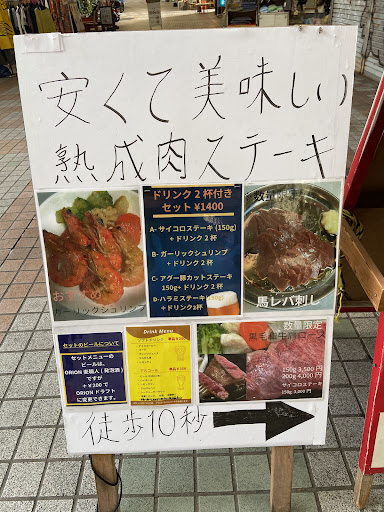 安くて美味しい
熟成肉ステーキ
ドリンク2杯付き
セット¥1400
A- サイコロステーキ (150g)
+ ドリンク2杯
B- ガーリックシュリンプ
+ ドリンク2杯
C- アグー豚カットステーキ
150g+ ドリンク2杯
D-ハラミステーキ(150g)
+ ドリンク2杯
ガーリックシュリンプ
数量
馬レバ刺し
セットのビールについて
セットメニューの
ビールは、
ORION 麦職人 ( 発泡酒 )
ですが
+ ¥200 で
ORION ドラフト
に変更できます。
Drink Menu
数量限定
150g 3,500 円
200g 4,000 円
サイコロステーキ
150g 3,000円
徒歩10秒